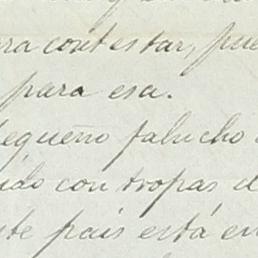 ra contestar, pue
para esa.
equeño falucho
ido con tropas d
te país está en